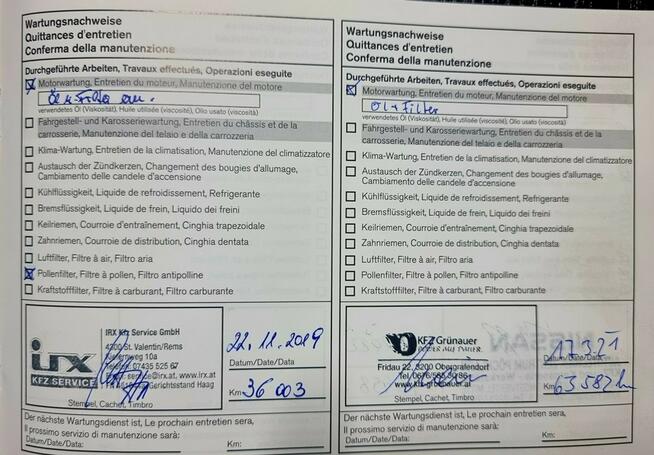 Wartungsnachweise
Quittances d'entretien
Conferma della manutenzione
Durchgeführte Arbeiten, Travaux effectués, Operazioni eseguite
Motorwartung, Entretien du moteur, Manutenzione del motore
Öl u Filter
verwendetes Öl (Viskosität), Huile utilisée (viscosité), Olio usato (viscosità)
Fahrgestell- und Karosseriewartung, Entretien du châssis et de la
carrosserie, Manutenzione del telaio e della carrozzeria
Klima-Wartung, Entretien de la climatisation, Manutenzione del climatizzatore
Austausch der Zündkerzen, Changement des bougies d'allumage,
Cambiamento delle candele d'accensione
Kühlflüssigkeit, Liquide de refroidissement, Refrigerante
Bremsflüssigkeit, Liquide de frein, Liquido dei freini
Keilriemen, Courroie d'entraînement, Cinghia trapezoidale
Zahnriemen, Courroie de distribution, Cinghia dentata
Luftfilter, Filtre à air, Filtro aria
Pollenfilter, Filtre à pollen, Filtro antipolline
Kraftstofffilter, Filtre à carburant, Filtro carburante
irx
KFZ SERVICE
IRX Kfz Service GmbH
4300 St. Valentin/Rems
10a
Telefon: 07435 525 67
service@irx.at, www.irx.at
Gerichtsstand Haag
Stempel, Cachet, Timbro
22.11.2019
Datum/Date/Data:
Km: 36 003
Der nächste Wartungsdienst ist, Le prochain entretien sera,
Il prossimo servizio di manutenzione sarà:
Datum/Date/Data: Km:
Wartungsnachweise
Quittances d'entretien
Conferma della manutenzione
Durchgeführte Arbeiten, Travaux effectués, Operazioni eseguite
Motorwartung, Entretien du moteur, Manutenzione del motore
Öl + Filter
verwendetes Öl (Viskosität), Huile utilisée (viscosité), Olio usato (viscosità)
Fahrgestell- und Karosseriewartung, Entretien du châssis et de la
carrosserie, Manutenzione del telaio e della carrozzeria
Klima-Wartung, Entretien de la climatisation, Manutenzione del climatizzatore
Austausch der Zündkerzen, Changement des bougies d'allumage,
Cambiamento delle candele d'accensione
Kühlflüssigkeit, Liquide de refroidissement, Refrigerante
Bremsflüssigkeit, Liquide de frein, Liquido dei freini
Keilriemen, Courroie d'entraînement, Cinghia trapezoidale
Zahnriemen, Courroie de distribution, Cinghia dentata
Luftfilter, Filtre à air, Filtro aria
Pollenfilter, Filtre à pollen, Filtro antipolline
Kraftstofffilter, Filtre à carburant, Filtro carburante
KFZ Grünauer
Fridau 22, 3200 Obergrafendorf
www.kfz-gruenauer.at
Stempel, Cachet, Timbro
Datum/Date/Data:
Km: 63582 km
Der nächste Wartungsdienst ist, Le prochain entretien sera,
Il prossimo servizio di manutenzione sarà:
Datum/Date/Data: Km: